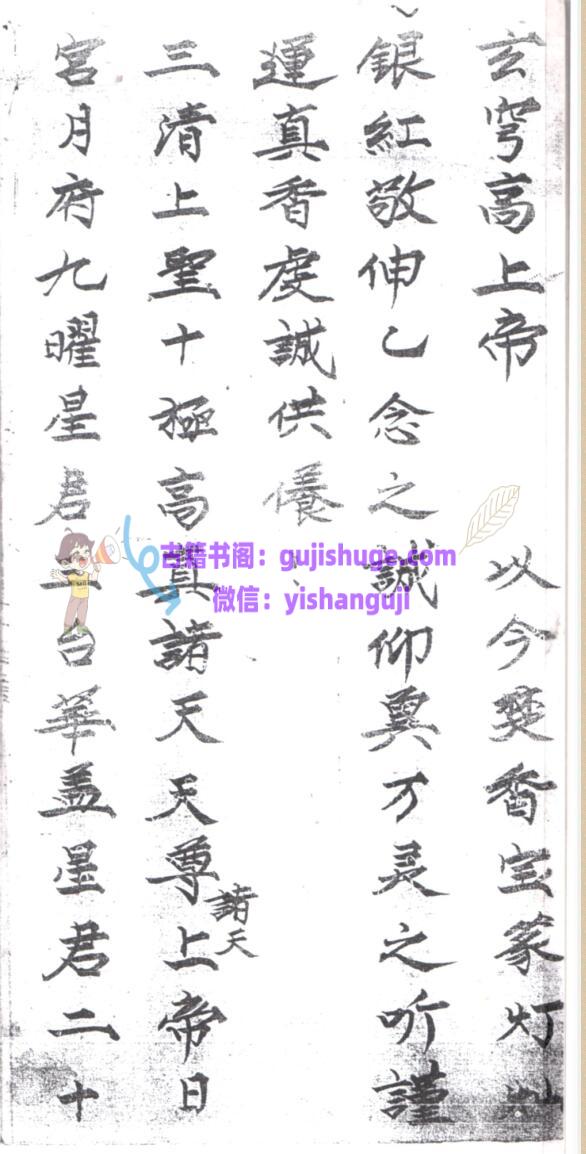 玄穹高上帝 以今焚香宝篆灯灿
银红敬伸乙念之誠仰奠万灵之听謹
運真香虔誠供養
三清上聖十極高真諸天天尊上帝日
諸天
宮月府九曜星君台華盖星君二十
古籍书阁：gujishuge.com
微信：yishanguji